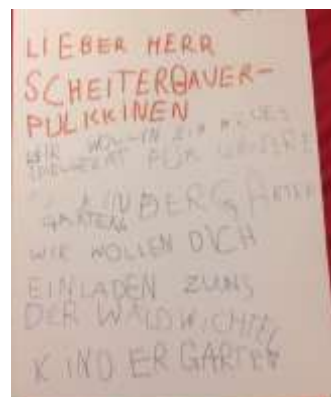 LIEBER HERR
SCHEITERBAUER-
PULKKINEN
WIR WOLLEN EIN NEUES
SPIELGERÄT FÜR UNSERE
KINDERGARTEN
GARTEN
WIR WOLLEN DICH
EINLADEN ZUNS
DER WALDWICHTEL
KINDERGARTEN